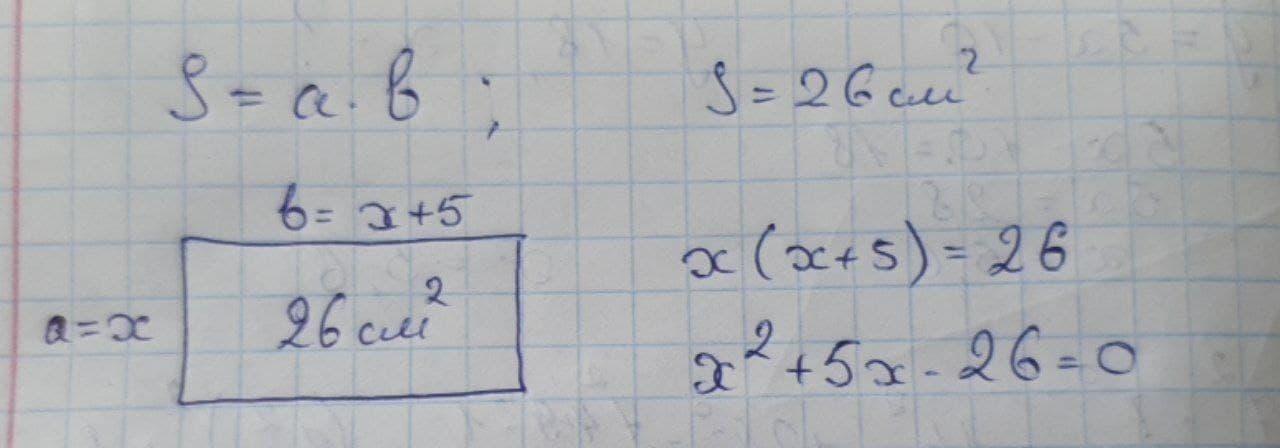 S = a · b ;
S = 26 см²
b = x+5
a = x
26 см²
x (x+5) = 26
x² + 5x - 26 = 0